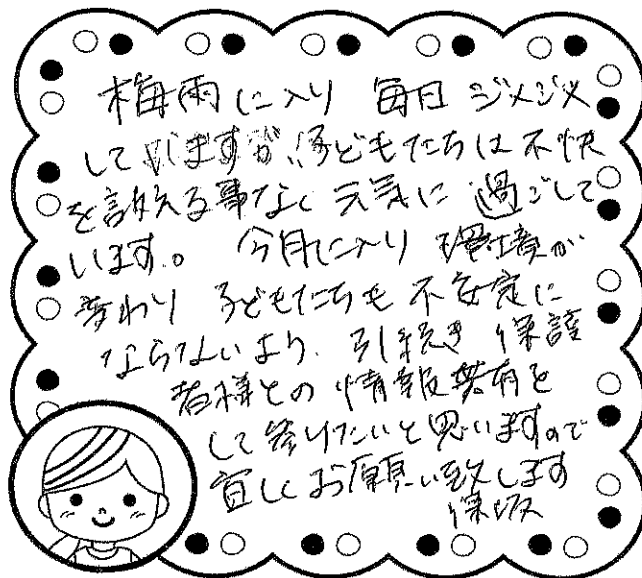 梅雨に入り 毎日 ジメジメ
していますが、子どもたちは不快
を訴える事なく元気に過ごして
います。 今月に入り 環境が
変わり 子どもたちも 不安定に
ならないよう、引続き 保護
者様との情報共有を
して参りたいと思いますので
宜しくお願い致します
保坂